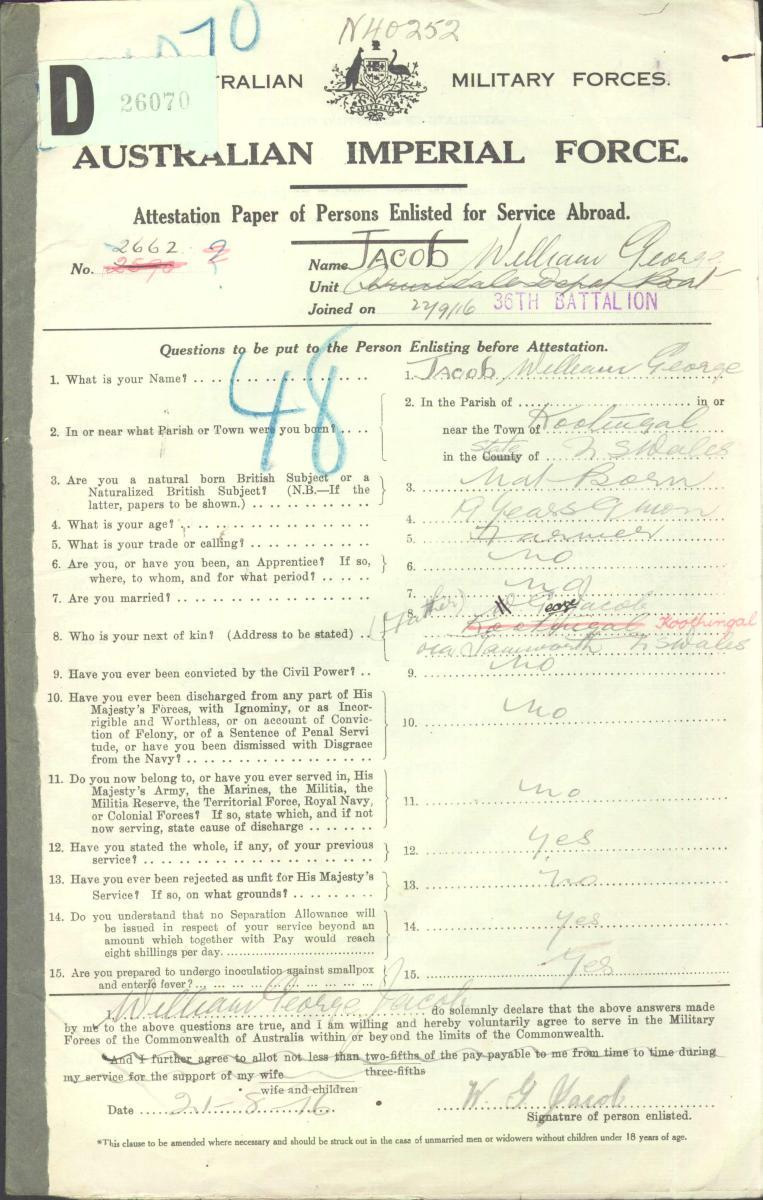 N40252
D 26070
AUSTRALIAN MILITARY FORCES.
AUSTRALIAN IMPERIAL FORCE.
Attestation Paper of Persons Enlisted for Service Abroad.
No. 2662
Name JACOB William George
Unit Armidale Depot
Joined on 22/9/16 36TH BATTALION
Questions to be put to the Person Enlisting before Attestation.
1. What is your Name? 1. Jacob William George
2. In or near what Parish or Town were you born? 2. In the Parish of in or
near the Town of Kootingal
in the County of state N S Wales
3. Are you a natural born British Subject or a
Naturalized British Subject? (N.B.—If the
latter, papers to be shown.) 3. Nat Born
4. What is your age? 4. 19 Years 9 mon
5. What is your trade or calling? 5. Farmer
6. Are you, or have you been, an Apprentice? If so,
where, to whom, and for what period? 6. no
7. Are you married? 7. no
8. Who is your next of kin? (Address to be stated) 8. (Father) George Jacob
Kootingal Koothingal
via Tamworth N S Wales
9. Have you ever been convicted by the Civil Power? 9. no
10. Have you ever been discharged from any part of His
Majesty's Forces, with Ignominy, or as Incor-
rigible and Worthless, or on account of Convic-
tion of Felony, or of a Sentence of Penal Servi
tude, or have you been dismissed with Disgrace
from the Navy? 10. no
11. Do you now belong to, or have you ever served in, His
Majesty's Army, the Marines, the Militia, the
Militia Reserve, the Territorial Force, Royal Navy,
or Colonial Forces? If so, state which, and if not
now serving, state cause of discharge 11. no
12. Have you stated the whole, if any, of your previous
service? 12. yes
13. Have you ever been rejected as unfit for His Majesty's
Service? If so, on what grounds? 13. no
14. Do you understand that no Separation Allowance will
be issued in respect of your service beyond an
amount which together with Pay would reach
eight shillings per day. 14. yes
15. Are you prepared to undergo inoculation against smallpox
and enteric fever? 15. Yes
48
I, William George Jacob do solemnly declare that the above answers made
by me to the above questions are true, and I am willing and hereby voluntarily agree to serve in the Military
Forces of the Commonwealth of Australia within or beyond the limits of the Commonwealth.
And I further agree to allot not less than two-fifths of the pay payable to me from time to time during
three-fifths
my service for the support of my wife
wife and children
Date 21-8-16 W. G. Jacob
Signature of person enlisted.
*This clause to be amended where necessary and should be struck out in the case of unmarried men or widowers without children under 18 years of age.